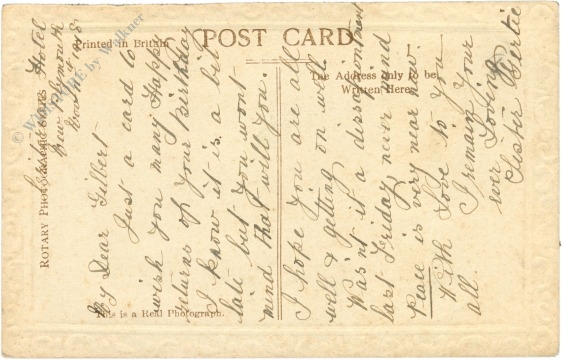 Hotel
New Plymouth
My Dear Gilbert
Just a card to
wish you many Happy
returns of your Birthday
I know it is a bit
late but you wont
mind that will you.
I hope you are all
well & getting on well
Was'nt it a dissapointment
last Friday, never mind
Peace is very near now
With Love to you
all. I remain Your
ever Loving
Sister Gertie
Printed in Britain
POST CARD
The Address only to be
Written Here
ROTARY PHOTOGRAPHIC
This is a Real Photograph.
by Walkner